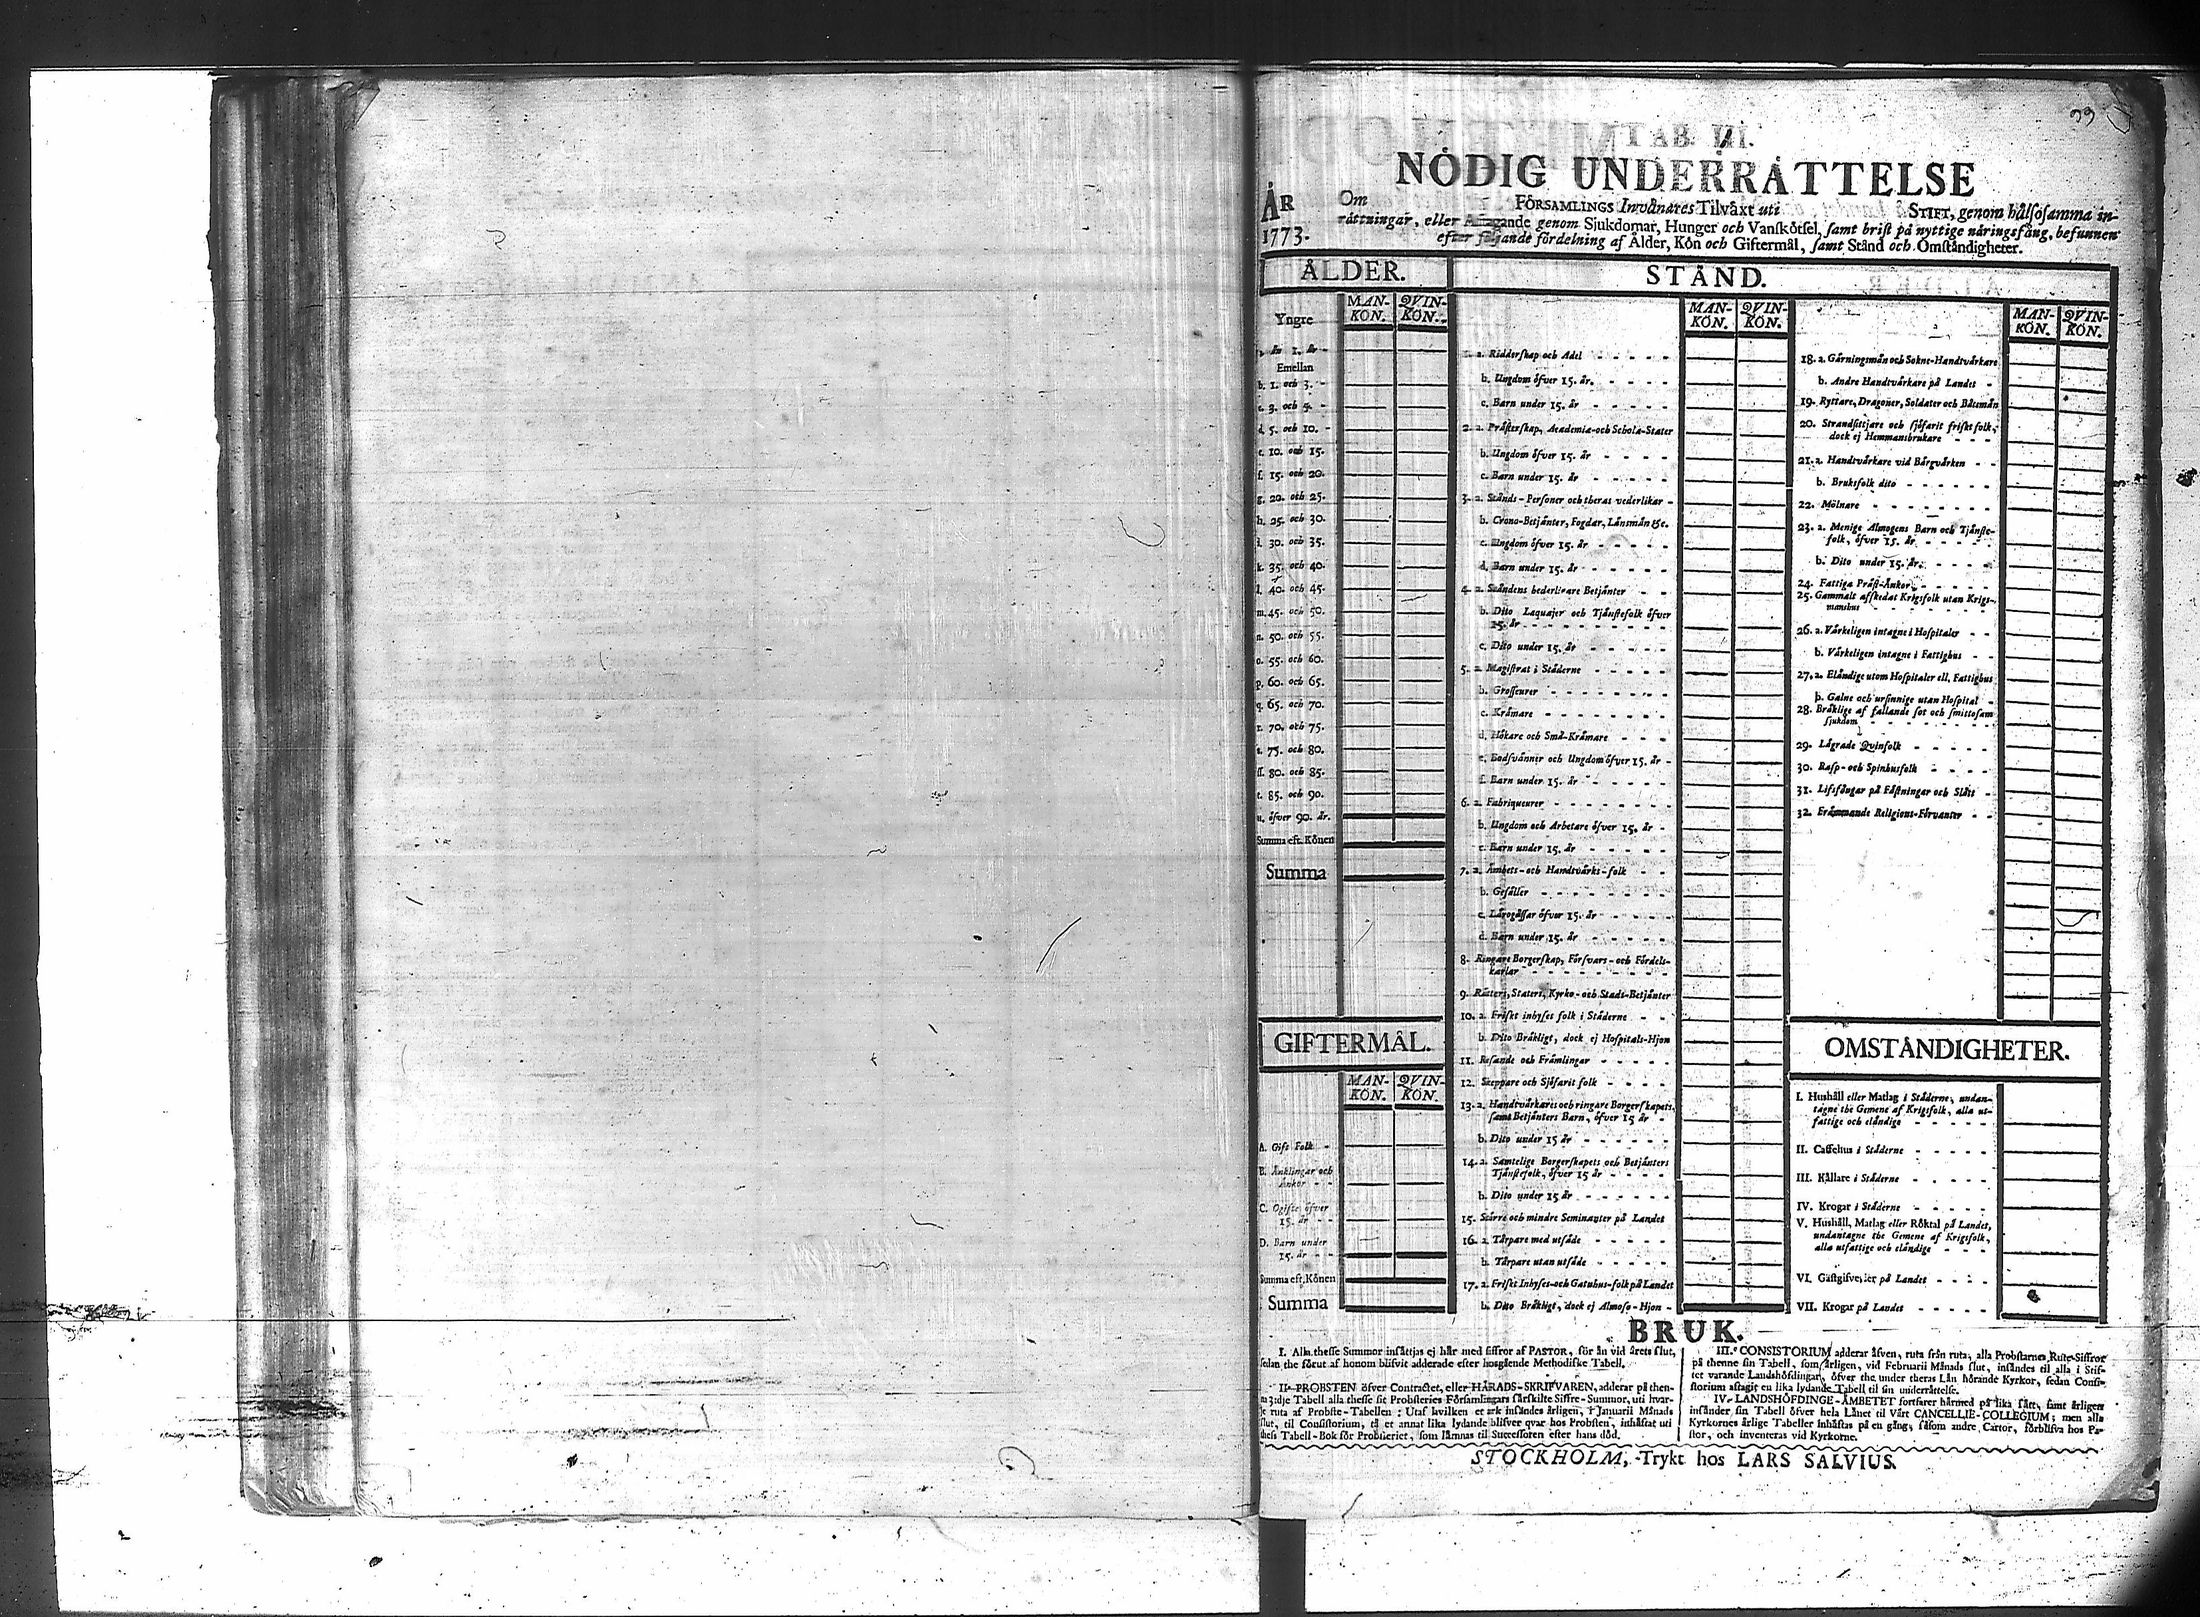 99
TAB. III.
NÖDIG UNDERRÄTTELSE
ÅR 1773.
Om FÖRSAMLINGS Invånares Tilväxt uti STIFT, genom hälsosamma in-
rättningar, eller Aftagande genom Sjukdomar, Hunger och Vanskötsel, samt brist på nyttige näringsfång, befunnen
efter följande fördelning af Ålder, Kön och Giftermål, samt Stånd och Omständigheter.
ÅLDER.
MAN-KÖN. QVIN-KÖN.
Yngre
än 1. År
Emellan
b. 1. och 3.
c. 3. och 5.
d. 5. och 10.
e. 10. och 15.
f. 15. och 20.
g. 20. och 25.
h. 25. och 30.
i. 30. och 35.
k. 35. och 40.
l. 40. och 45.
m. 45. och 50.
n. 50. och 55.
o. 55. och 60.
p. 60. och 65.
q. 65. och 70.
r. 70. och 75.
s. 75. och 80.
ss. 80. och 85.
t. 85. och 90.
u. öfver 90. år.
Summa eft. Könen
Summa
GIFTERMÅL.
MAN-KÖN. QVIN-KÖN.
A. Gift Folk
B. Änklingar och
Änkor
C. Ogifte öfver
15. år
D. Barn under
15. år
Summa eft. Könen
Summa
STÅND.
MAN-KÖN. QVIN-KÖN.
1. a. Ridderskap och Adel
b. Ungdom öfver 15. år.
c. Barn under 15. år
2. a. Prästerskap, Academia- och Schola-Stater
b. Ungdom öfver 15. år
c. Barn under 15. år
3. a. Stånds-Personer och theras vederlikar
b. Crono-Betjänter, Fogdar, Länsmän &c.
c. Ungdom öfver 15. år
d. Barn under 15. år
4. a. Ståndens hederligare Betjänter
b. Dito Laquajer och Tjänstefolk öfver
15. år
c. Dito under 15. år
5. a. Magistrat i Städerne
b. Grosseurer
c. Krämare
d. Hökare och Små-Krämare
e. Bodsvänner och Ungdom öfver 15. år
f. Barn under 15. år
6. a. Fabriqueurer
b. Ungdom och Arbetare öfver 15. år
c. Barn under 15. år
7. a. Ämbets- och Handtvärks-folk
b. Gesäller
c. Lärogåssar öfver 15. år
d. Barn under 15. år
8. Ringare Borgerskap, Försvars- och Fördels-
karlar
9. Rätteri, Stateri, Kyrko- och Stads-Betjänter
10. a. Friskt inhyses folk i Städerne
b. Dito Bräkligt, dock ej Hospitals-Hjon
11. Resande och Främlingar
12. Skeppare och Sjöfarit folk
13. a. Handtvärkares och ringare Borgerskapets,
samt Betjänters Barn, öfver 15 år
b. Dito under 15 år
14. a. Samtelige Borgerskapets och Betjänters
Tjänstefolk, öfver 15 år
b. Dito under 15 år
15. Större och mindre Seminanter på Landet
16. a. Tårpare med utsäde
b. Tårpare utan utsäde
17. a. Friskt Inhyses- och Gatuhus-folk på Landet
b. Dito Bräkligt, dock ej Almoso-Hjon
MAN-KÖN. QVIN-KÖN.
18. a. Gärningsmän och Sokne-Handtvärkare
b. Andre Handtvärkare på Landet
19. Ryttare, Dragoner, Soldater och Båtsmän
20. Strandsittjare och sjöfarit friskt folk,
dock ej Hemmansbrukare
21. a. Handtvärkare vid Bärgvärken
b. Bruksfolk dito
22. Mölnare
23. a. Menige Almogens Barn och Tjänste-
folk, öfver 15. år
b. Dito under 15. år.
24. Fattiga Präst-Änkor
25. Gammalt afskedat Krigsfolk utan Krigs-
manshus
26. a. Värkeligen intagne i Hospitaler
b. Värkeligen intagne i Fattighus
27. a. Eländige utom Hospitaler ell. Fattighus
b. Galne och ursinnige utan Hospital
28. Bräklige af fallande sot och smittosam
sjukdom
29. Lägrade Qvinfolk
30. Rasp- och Spinhusfolk
31. Lifsfångar på Fästningar och Slått
32. Främmande Religions-Förvanter
OMSTÄNDIGHETER.
I. Hushåll eller Matlag i Städerne, undan-
tagne the Gemene af Krigsfolk, alla ut-
fattige och eländige
II. Caffehus i Städerne
III. Källare i Städerne
IV. Krogar i Städerne
V. Hushåll, Matlag eller Röktal på Landet,
undantagne the Gemene af Krigsfolk,
alla utfattige och eländige
VI. Gästgifverier på Landet
VII. Krogar på Landet
BRUK.
I. Alla thesse Summor insättjas ej här med siffror af PASTOR, för än vid årets slut,
sedan the förut af honom blifvit adderade efter hosgående Methodiske Tabell.
II. PROBSTEN öfver Contractet, eller HÄRADS-SKRIFVAREN, adderar på then-
na 3:dje Tabell alla thesse sit Probsteries Församlingars särskilte Siffre-Summor, uti hvar-
je ruta af Probste-Tabellen: Utaf hvilken et ark insändes årligen, i Januarii Månads
slut, til Consistorium, tå et annat lika lydande blifver qvar hos Probsten, inhäftat uti
thess Tabell-Bok för Probsteriet, som lämnas til Successoren efter hans död.
III. CONSISTORIUM adderar äfven, ruta från ruta, alla Probstarnes Riste-Siffror
på thenne sin Tabell, som årligen, vid Februarii Månads slut, insändes til alla i Stif-
tet varande Landshöfdingar, öfver the under theras Län hörande Kyrkor, sedan Consi-
storium aftagit en lika lydande Tabell til sin underrättelse.
IV. LANDSHÖFDINGE-ÄMBETET fortfarer härmed på lika sätt, samt årligen
insänder sin Tabell öfver hela Länet til Vårt CANCELLIE-COLLEGIUM; men alla
Kyrkornes årlige Tabeller inhäftas på en gång, såsom andre Cartor, förblifva hos Pa-
stor, och inventeras vid Kyrkorne.
STOCKHOLM, Trykt hos LARS SALVIUS.